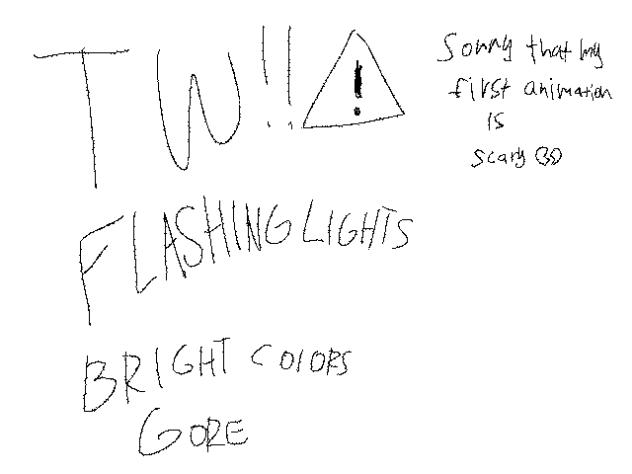 TW!!
!
FLASHING LIGHTS
BRIGHT COLORS
GORE
Sorry that my
first animation
is
scary